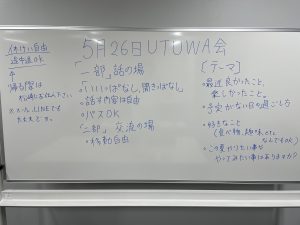 5月26日UTUWA会
休けい自由
途中退OK
帰る際は
※メール、LINEでも
大丈夫です。
「一部」話の場
・いいっぱなし、聞きっぱなし
・話す内容は自由
・パスOK
「二部」交流の場
・移動自由
[テーマ]
・最近良かったこと、
楽しかったこと。
・予定がない日の過ごし方
・好きなこと
(食べ物、趣味、etc
なんでもOK)
・この夏やりたい事や
やってみたい事はありますか?